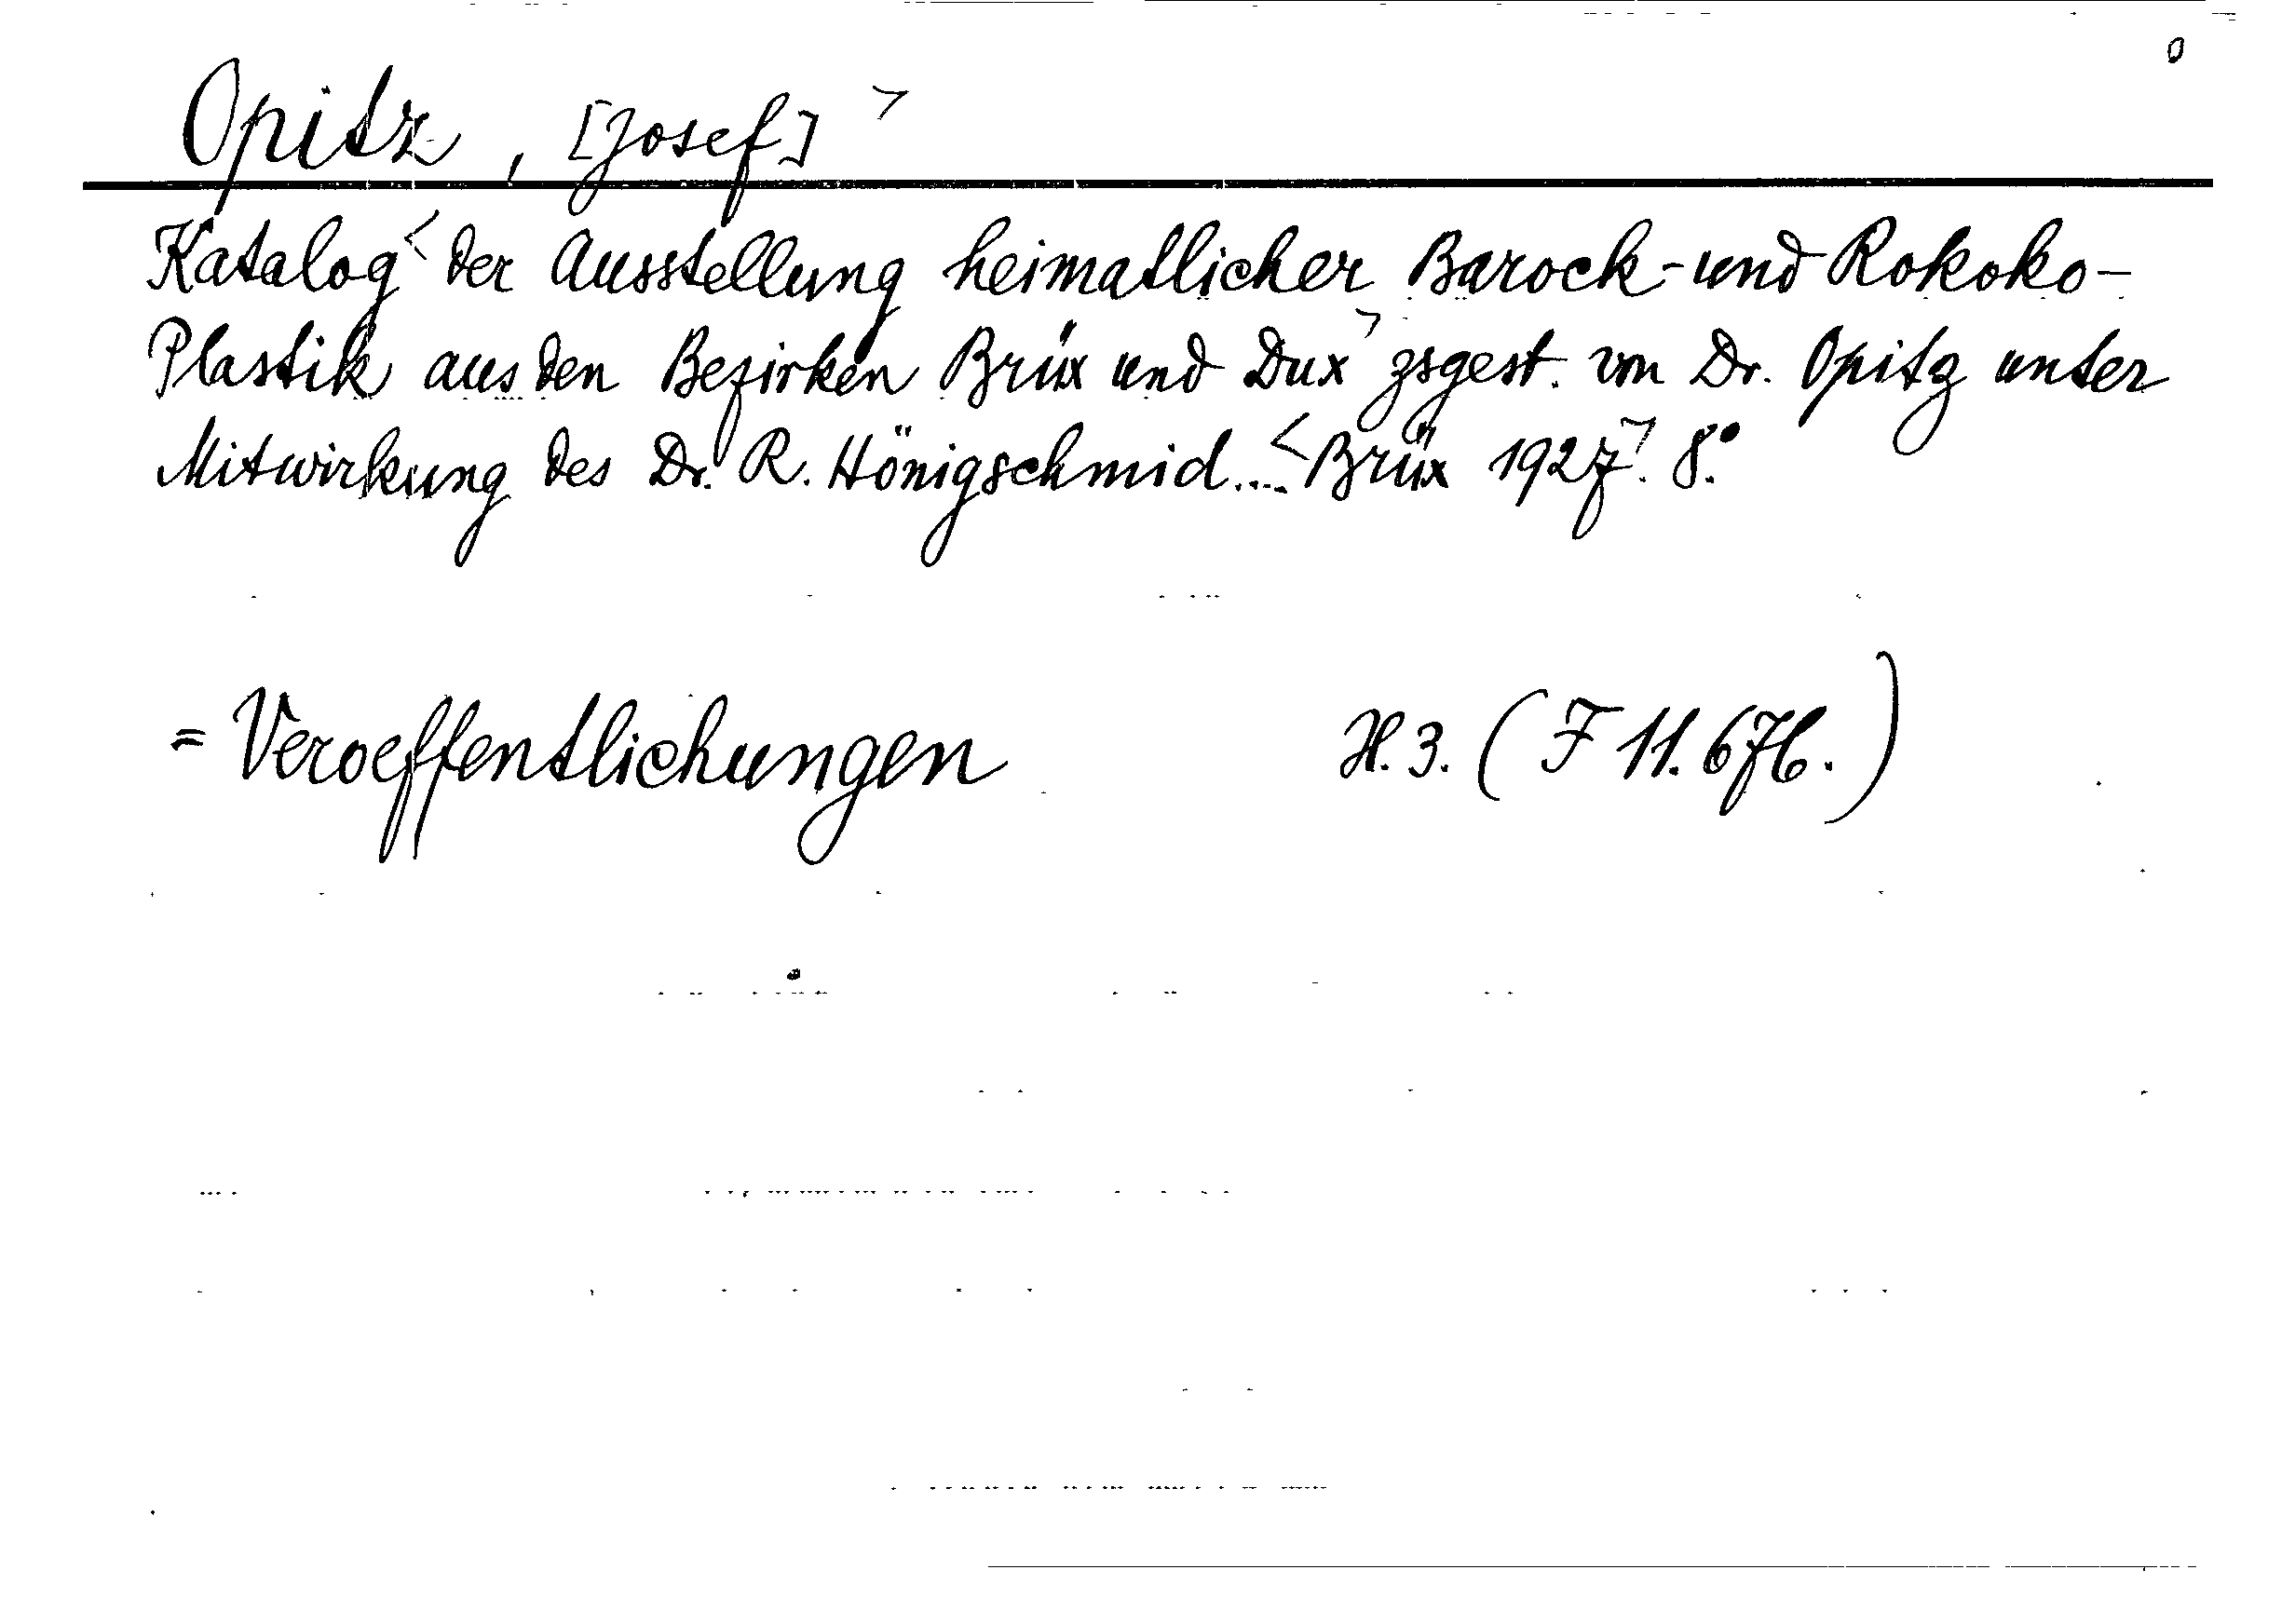 0
Opitz, [Josef] >
Katalog < der Ausstellung heimatlicher Barock- und Rokoko-
Plastik aus den Bezirken Brüx und Dux > zsgest. von Dr. Opitz unter
Mitwirkung des Dr. R. Hönigschmid.... < Brüx 1927 >. 8.°
= Veroeffentlichungen H. 3. (F 11.676.)